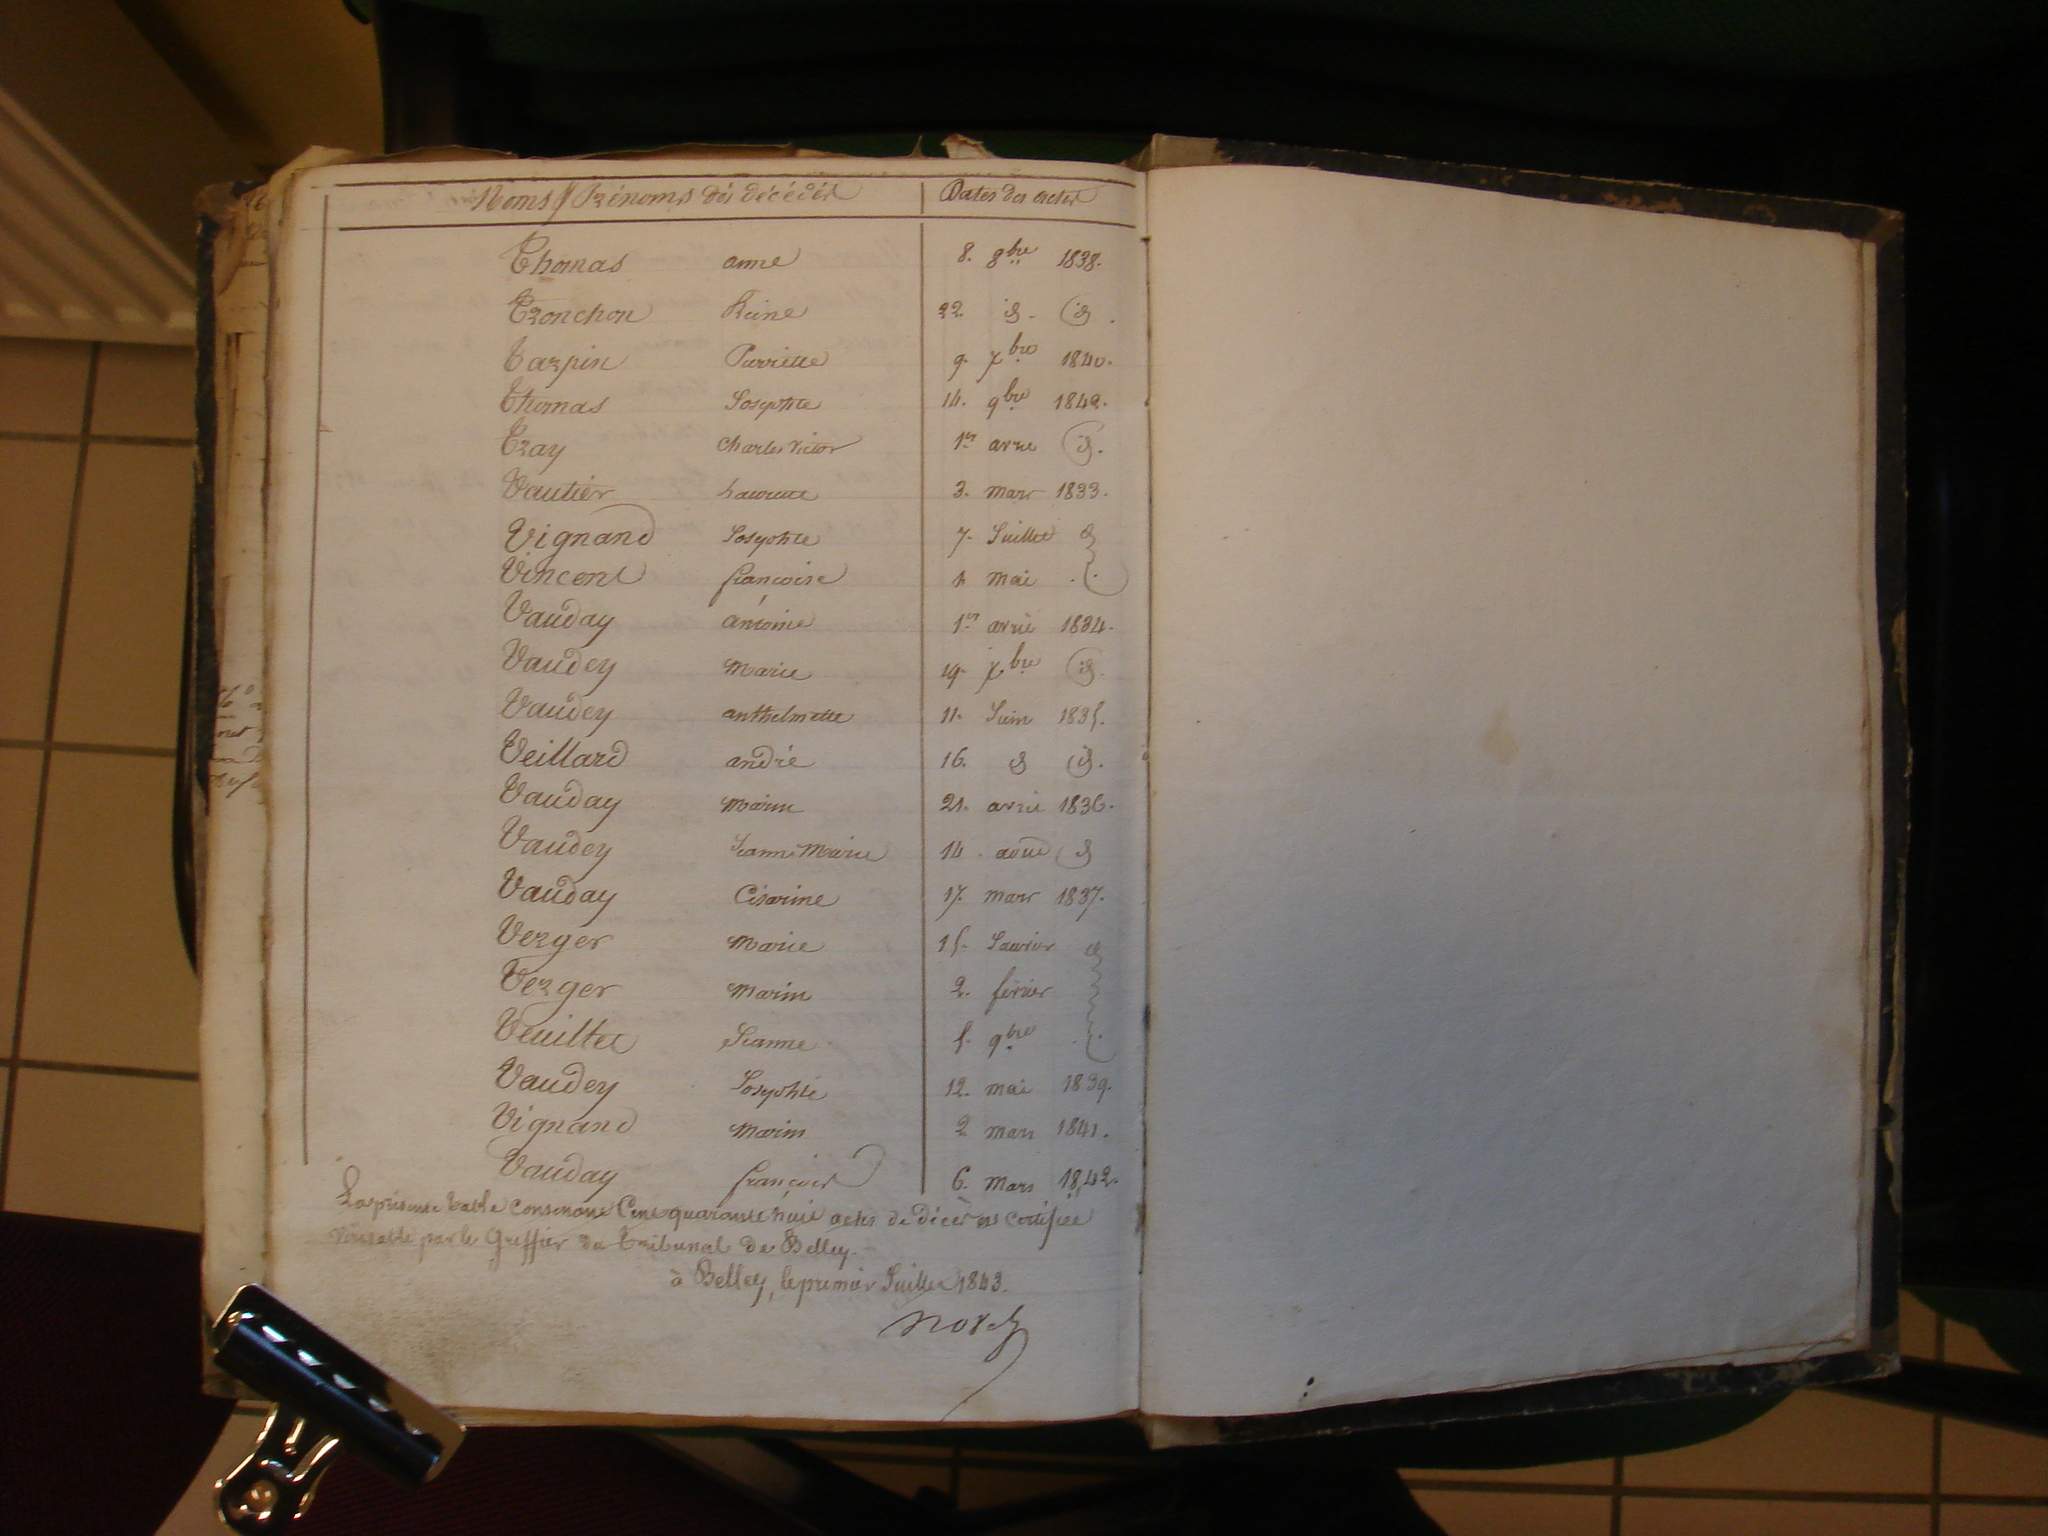 Noms & Prénoms des décédés Dates des actes
Thomas anne 8. 8bre 1838.
Tronchon Reine 22. id. id.
Tarpin Pierrette 9. Xbre 1840.
Thomas Josephte 14. 9bre 1842.
Tray Charles Victor 1er avril id.
Vautier Laurent 3. mars 1833.
Vignand Josephte 7. Juillet id
Vincent françoise 4 mai
Vauday antoine 1er avril 1834.
Vaudey Marie 19. Xbre id.
Vaudey anthelmette 11. Juin 1835.
Veillard andré 16. id id.
Vauday Marin 21. avril 1836.
Vaudey Jeanne Marie 14. août id
Vauday Césarine 17. mars 1837.
Verger Marie 15. Janvier id
Verger Marin 2. février
Veuillet Jeanne 5. 9bre
Vaudey Josephte 12. mai 1839.
Vignand Marin 2 mars 1841.
Vauday françois 6. mars 1842.
La présente table contenant Cent quarante huit actes de décès est certifiée
véritable par le Greffier du Tribunal de Belley.
à Belley, le premier Juillet 1843.